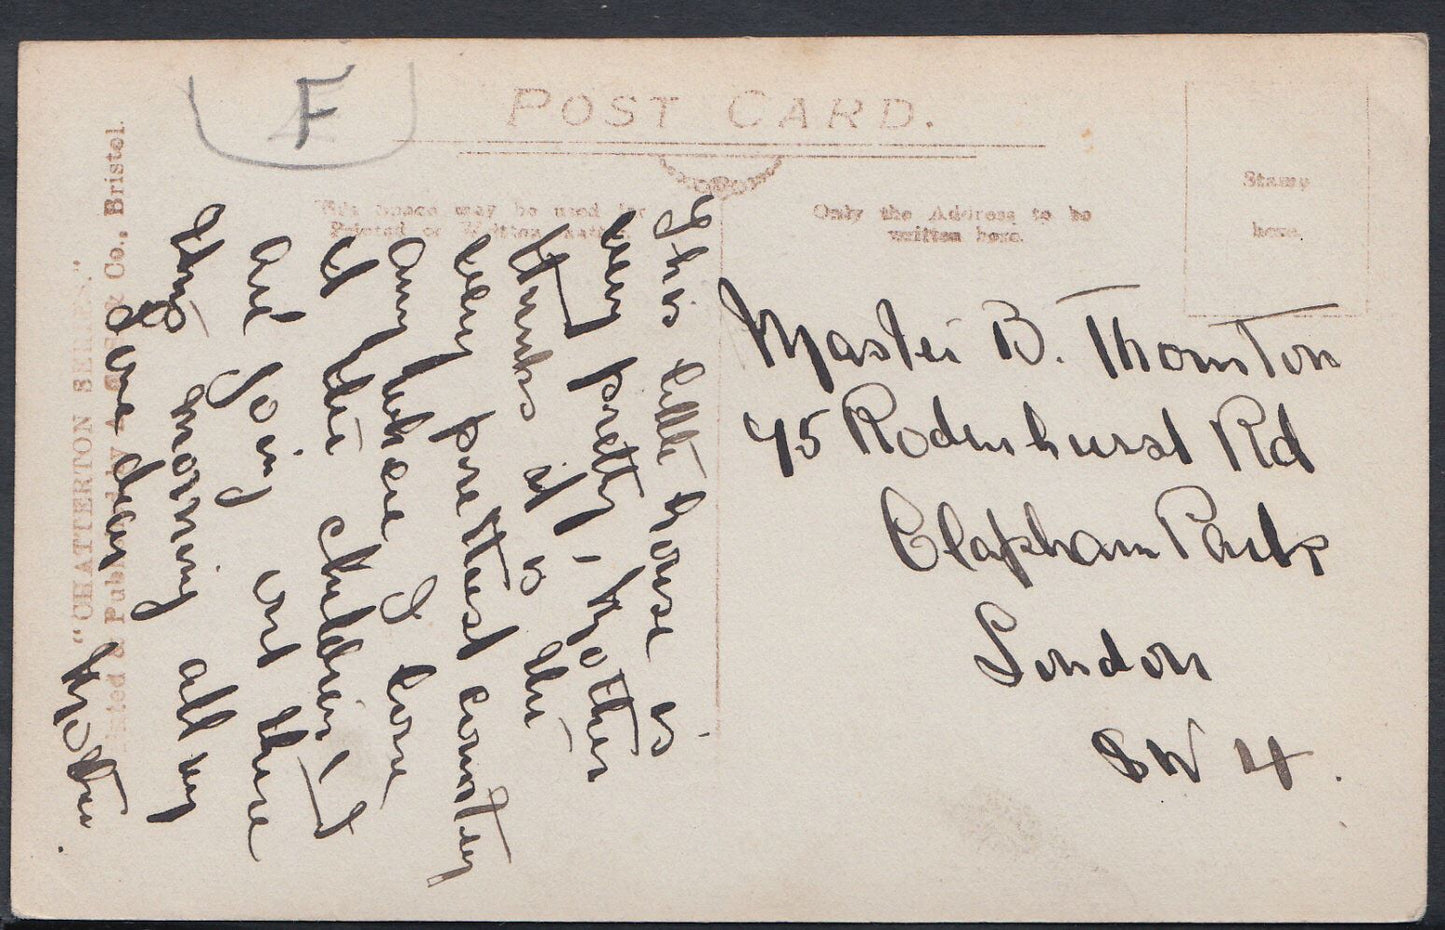 F
POST CARD.
This Space may be used for
Printed or Written Matter.
Only the Address to be
written here.
Stamp
here.
"CHATTERTON SERIES."
Printed & Published by
Co., Bristol.
This little house is
very pretty, Mother
thinks it is the
very prettiest country
anywhere. I love
it the children, I
are going out there
this morning all my
love dear
Mother
Master B. Thornton
45 Rodenhurst Rd
Clapham Park
London
SW 4.